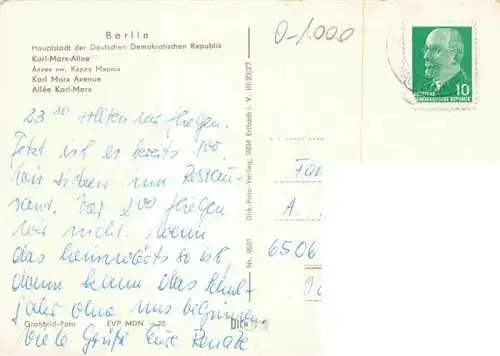 Berlin
Hauptstadt der Deutschen Demokratischen Republik
Karl-Marx-Allee
Аллея им. Карла Маркса
Karl Marx Avenue
Allée Karl-Marx
23 30 sollten wir fliegen.
Jetzt ist es bereits 1 00.
Wir sitzen im Restau-
rant. Vor 2 00 fliegen
wir nicht. Wenn
das heimwärts so ist,
dann kann das Schul-
jahr ohne uns beginnen
Viele Grüße Eure Renate.
Großbild-Foto EVP MDN
Dick-Foto-Verlag, 9234 Erlbach i. V. III/20/27
Nr. 9561
0-1000
DEUTSCHE
DEMOKRATISCHE REPUBLIK
10
Fam
A.
6506